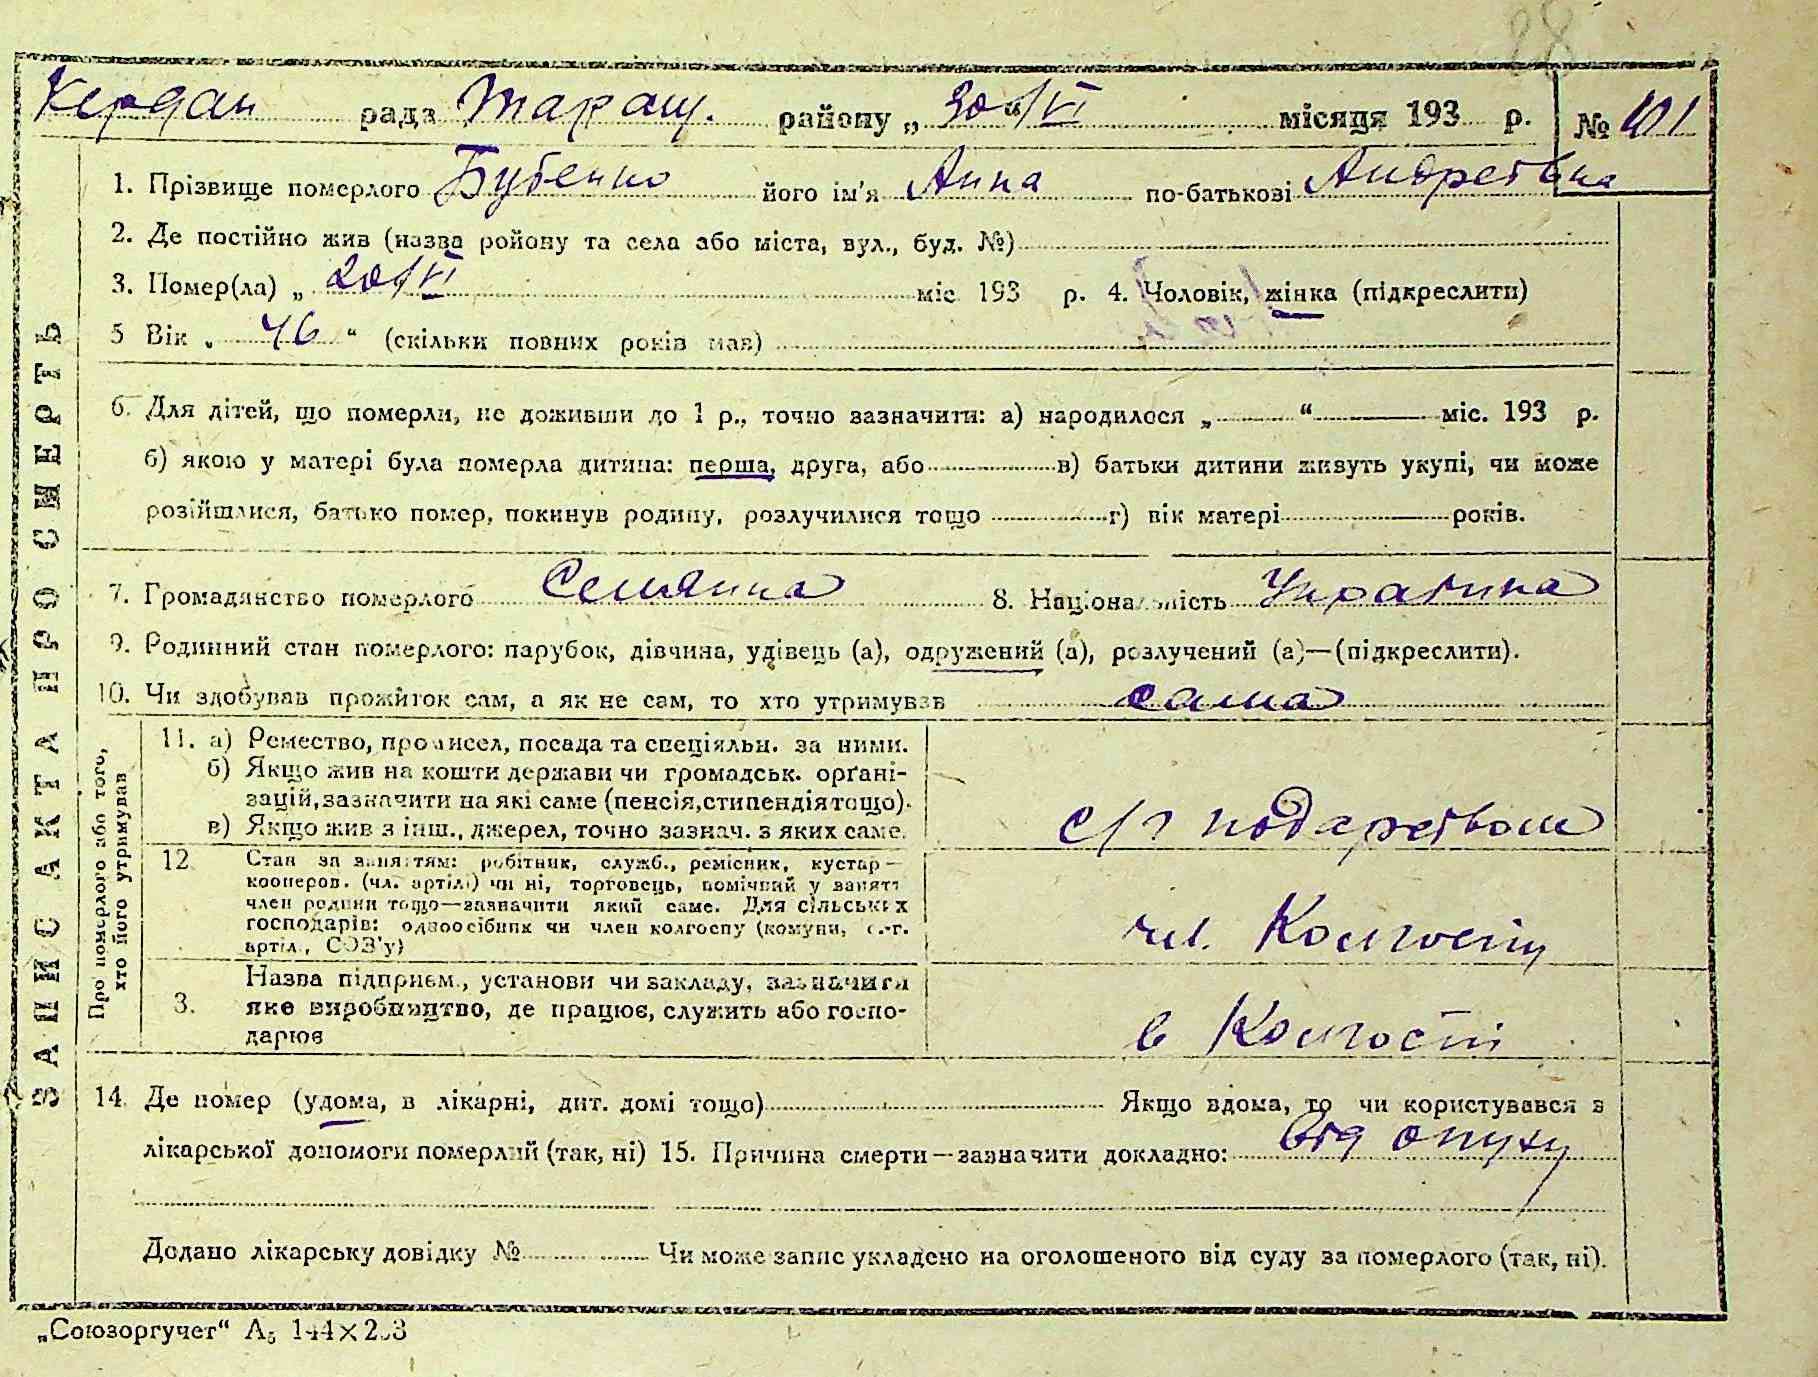 28
Кердан рада Таращ. району „ 30/VI місяця 193 р. № 101
1. Прізвище померлого Бубенко його ім'я Анна по-батькові Андреевна
2. Де постійно жив (назва ройону та села або міста, вул., буд. №)
3. Помер(ла) „ 20/VI міс 193 р. 4. Чоловік, жінка (підкреслити)
5 Вік „ 46 “ (скільки повних років мав)
6. Для дітей, що померли, не доживши до 1 р., точно зазначити: а) народилося „ “ міс. 193 р.
б) якою у матері була померла дитина: перша, друга, або в) батьки дитини живуть укупі, чи може
розійшлися, батько помер, покинув родину, розлучилися тощо г) вік матері років.
7. Громадянство померлого Селянка 8. Національність Украинка
9. Родинний стан померлого: парубок, дівчина, удівець (а), одружений (а), розлучений (а)—(підкреслити).
10. Чи здобував прожиток сам, а як не сам, то хто утримував сама
ЗАПИС АКТА ПРО СМЕРТЬ
Про померлого або того, хто його утримував
11. а) Ремество, промисел, посада та спеціяльн. за ними.
б) Якщо жив на кошти держави чи громадськ. орґані-
зацій, зазначити на які саме (пенсія, стипендія тощо).
в) Якщо жив з інш., джерел, точно зазнач. з яких саме.
с/г подарством
12. Стан за заняттям: робітник, служб., ремісник, кустар—
кооперов. (чл. артілі) чи ні, торговець, помічний у занятт
член родини тощо—зазначити який саме. Для сільських
господарів: одноосібник чи член колгоспу (комуни, с.-г.
артіл., СОЗ'у)
чл. Колгоспу
3. Назва підприєм., установи чи закладу, зазначити
яке виробництво, де працює, служить або госпо-
дарює
в Колгоспі
14. Де помер (удома, в лікарні, дит. домі тощо) Якщо вдома, то чи користувався з
лікарської допомоги померлий (так, ні) 15. Причина смерти—зазначити докладно: від опуху
Додано лікарську довідку № Чи може запис укладено на оголошеного від суду за померлого (так, ні).
„Союзоргучет“ А₅ 144×203